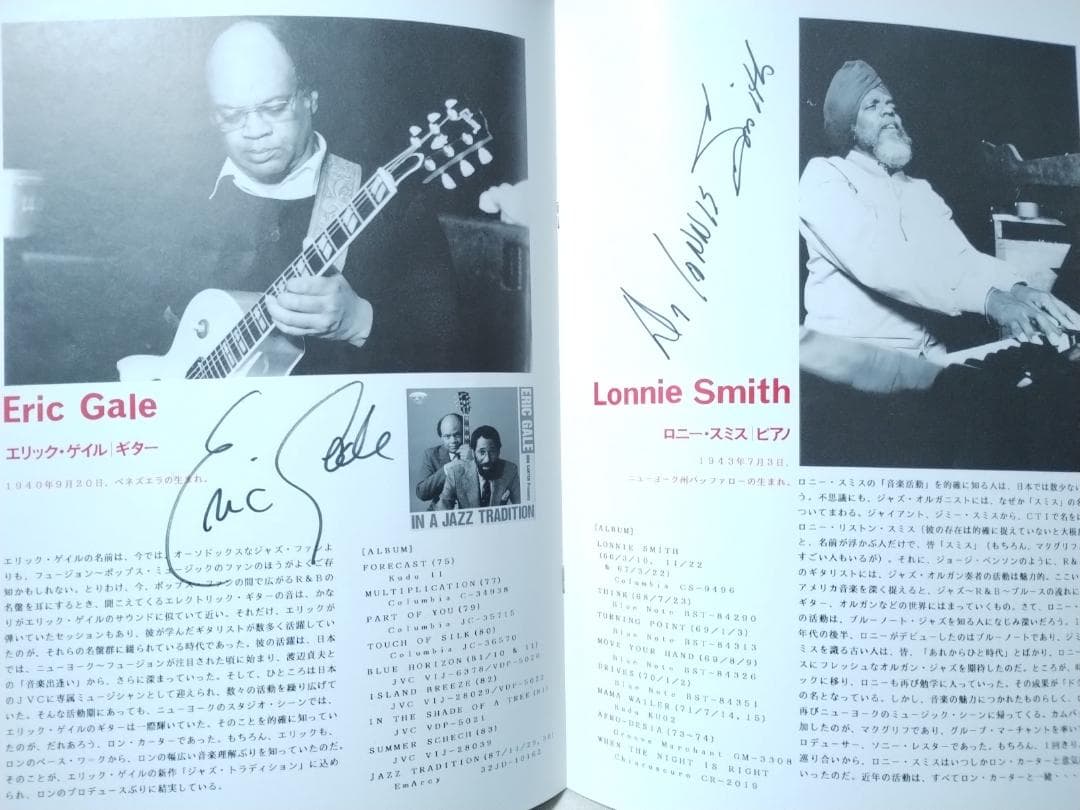 Eric Gale
エリック・ゲイル|ギター
1940年9月20日、ベネズエラの生まれ。
Eric Gale
ERIC GALE
RON CARTER Presents
IN A JAZZ TRADITION
エリック・ゲイルの名前は、今では、オーソドックスなジャズ・ファンよ
りも、フュージョン〜ポップス・ミュージックのファンのほうがよくご存
知かもしれない。とりわけ、今、ポップス・ファンの間で広がるR&Bの
名盤を耳にするとき、聞こえてくるエレクトリック・ギターの音は、かな
りがエリック・ゲイルのサウンドに似ていて近い。それだけ、エリックが
弾いていたセッションもあり、彼が学んだギタリストが数多く活躍してい
たのが、それらの名盤群に綴られている時代であった。彼の活躍は、日本
では、ニューヨーク〜フュージョンが注目された頃に始まり、渡辺貞夫と
の「音楽出逢い」から、さらに深まっていった。そして、ひところは日本
のJVCに専属ミュージシャンとして迎えられ、数々の活動を繰り広げて
いた。そんな活動期にあっても、ニューヨークのスタジオ・シーンでは、
エリック・ゲイルのギターは一際輝いていた。そのことを的確に知ってい
たのが、だれあろう、ロン・カーターであった。もちろん、エリックも、
ロンのベース・ワークから、ロンの幅広い音楽理解ぶりを知っていたのだ。
そのことが、エリック・ゲイルの新作「ジャズ・トラディション」に込め
られ、ロンのプロデュースぶりに結実している。
[ALBUM]
FORECAST (75)
Kudu 11
MULTIPLICATION (77)
Columbia C-34938
PART OF YOU (79)
Columbia JC-35715
TOUCH OF SILK (80)
Columbia JC-36570
BLUE HORIZON (81/10 & 11)
JVC VIJ-6378/VDP-5020
ISLAND BREEZE (82)
JVC VIJ-28029/VDP-5022
IN THE SHADE OF A TREE (81)
JVC VDP-5021
SUMMER SCHECH (83)
JVC VIJ-28039
JAZZ TRADITION (87/11/29, 30)
EmArcy 32JD-10163
Dr Lonnie Smith
Lonnie Smith
ロニー・スミス|ピアノ
1943年7月3日、
ニューヨーク州バッファローの生まれ。
[ALBUM]
LONNIE SMITH
(66/3/10, 11/22
& 67/3/22)
Columbia CS-9496
THINK (68/7/23)
Blue Note BST-84290
TURNING POINT (69/1/3)
Blue Note BST-84313
MOVE YOUR HAND (69/8/9)
Blue Note BST-84326
DRIVES (70/1/2)
Blue Note BST-84351
MAMA WAILER (71/7/14, 15)
Kudu KU02
AFRO-DESIA (73~74)
Groove Marchant GM-3308
WHEN THE NIGHT IS RIGHT
Chiaroscuro CR-2019
ロニー・スミスの「音楽活動」を的確に知る人は、日本では数少ない
う。不思議にも、ジャズ・オルガニストには、なぜか「スミス」の名
ついてまわる。ジャイアント、ジミー・スミスから、CTIで名を
ロニー・リストン・スミス（彼の存在は的確に捉えていないと大樹
と、名前が浮かぶ人だけで、皆「スミス」（もちろん、マクグリフ
すごい人もいるが）。それに、ジョージ・ベンソンのように、R&
のギタリストには、ジャズ・オルガン奏者の活動は魅力的。ここい
アメリカ音楽を深く捉えると、ジャズ〜R&B〜ブルースの流れに
ギター、オルガンなどの世界にはまっていくもの。さて、ロニー・
の活動は、ブルーノート・ジャズを知る人になじみ深いだろう。1
年代の後半、ロニーがデビューしたのはブルーノートであり、ジミ
ミスを識る古い人は、皆、「あれからひと時代」とばかり、ロニー
スにフレッシュなオルガン・ジャズを期待したのだ。ところが、
ックに移り、ロニーも再び勉学に入っていった。その成果が「ドク
の名となっている。しかし、音楽の魅力につかれたものらしく、
再びニューヨークのミュージック・シーンに帰ってくる。カムバ
加したのが、マクグリフであり、グループ・マーチャントを率い
ロデューサー、ソニー・レスターであった。もちろん、1回きり
巡り合いから、ロニー・スミスはいつしかロン・カーターと意気
いったのだ。近年の活動は、すべてロン・カーターと一緒・・・